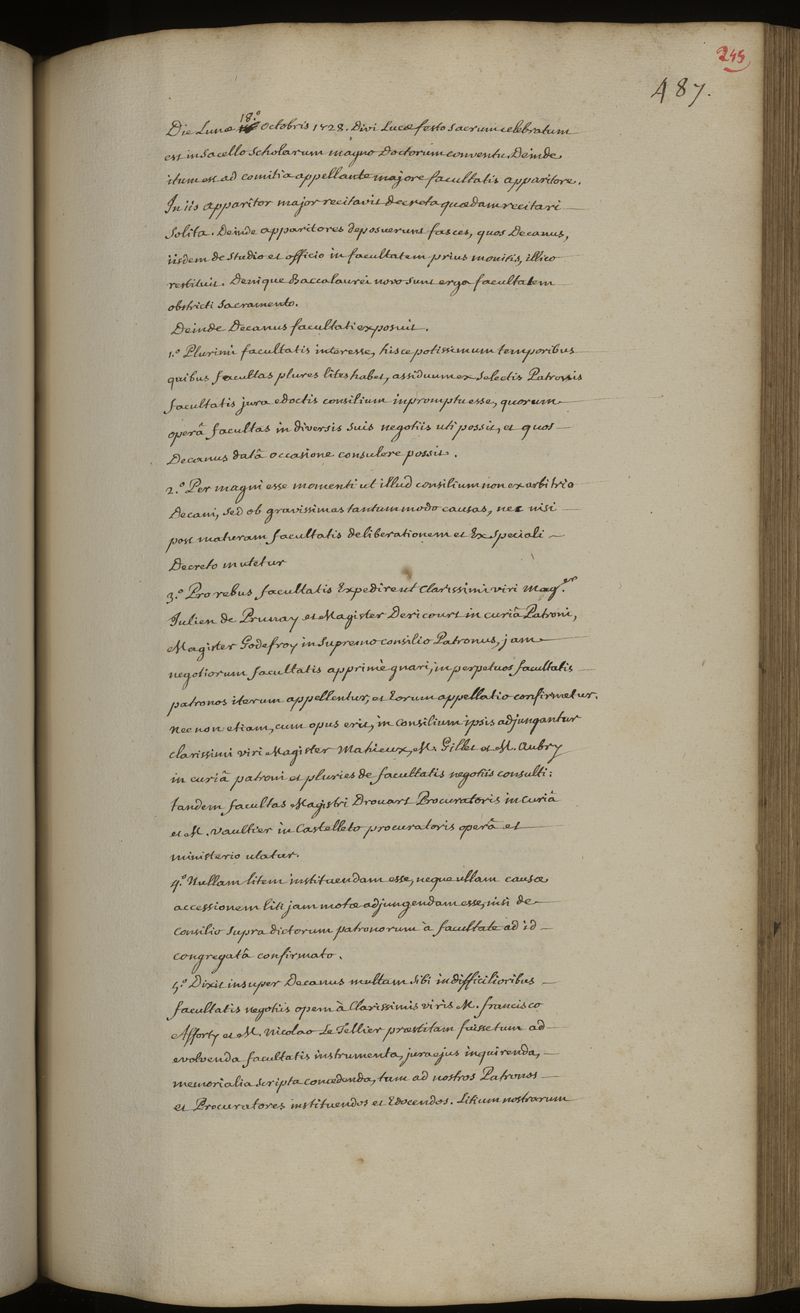 245
487.
18.°
Die Lunæ Octobris 1728. Divi Lucæ festo sacrum celebratum
est in Sacello Scholarum magno Doctorum conventu. Deinde
itum est ad comitia appellante majore facultatis apparitore.
In iis apparitor major recitavit decreta quædam recitari
Solita. Deinde apparitores deposuerunt fasces, quos Decanus,
iisdem de studio et officio in facultatem prius monitis, illico
restituit. Denique Baccalaurei novo sunt erga facultatem
obstricti Sacramento.
Deinde Decanus facultati exposuit.
1.° Plurimi facultatis interesse, hisce potissimum temporibus
quibus facultas plures lites habet, assiduum ex selectis Patronis
facultatis jura edoctis consilium in promptu esse, quorum
operâ facultas in diversis suis negotiis uti possit, et quos
Decanus datâ occasione consulere possit.
2.° Per magni esse momenti ut illud consilium non ex arbitrio
Decani, sed ob gravissimas tantummodo causas, nec nisi
post maturam facultatis deliberationem et Ex Speciali
Decreto mutetur
3.° Pro rebus facultatis Expediret ut Clarissimi viri Mag.er
Julien de Prunay et Magister Dericourt in curiâ Patroni,
Magister Godefroy in Supremo consilio Patronus, jam
negotiorum facultatis apprimè gnari, in perpetuos facultatis
patronos iterum appellentur, et Eorum appellatio confirmetur.
Nec non etiam, cum opus erit, in Consilium ipsis adjungantur
clarissimi viri Magister Mahieux, M. Gillet et M. Aubry
in curiâ patroni et pluries de facultatis negotiis consulti:
tandem facultas Magistri Drouart Procuratoris in Curiâ
et M. Vaultier in Castelleto procuratoris operâ et
ministerio utatur.
4.° Nullam litem instituendam esse, neque ullam causæ
accessionem liti jam motæ adjungendam esse, nisi de
Consilio Supra dictorum patronorum à facultate ad id
congregatâ confirmato.
5.° Dixit insuper Decanus multam Sibi in difficilioribus
facultatis negotiis opem à Clarissimis viris M. francisco
Afforty et M. Nicolao Le Tellier præstitam fuisse tum ad
evolvenda facultatis instrumenta, jura ejus inquirenda,
memorialia scripta concedenda, tum ad nostros Patronos
et Procuratores instituendos et Edocendos. Litium nostrarum